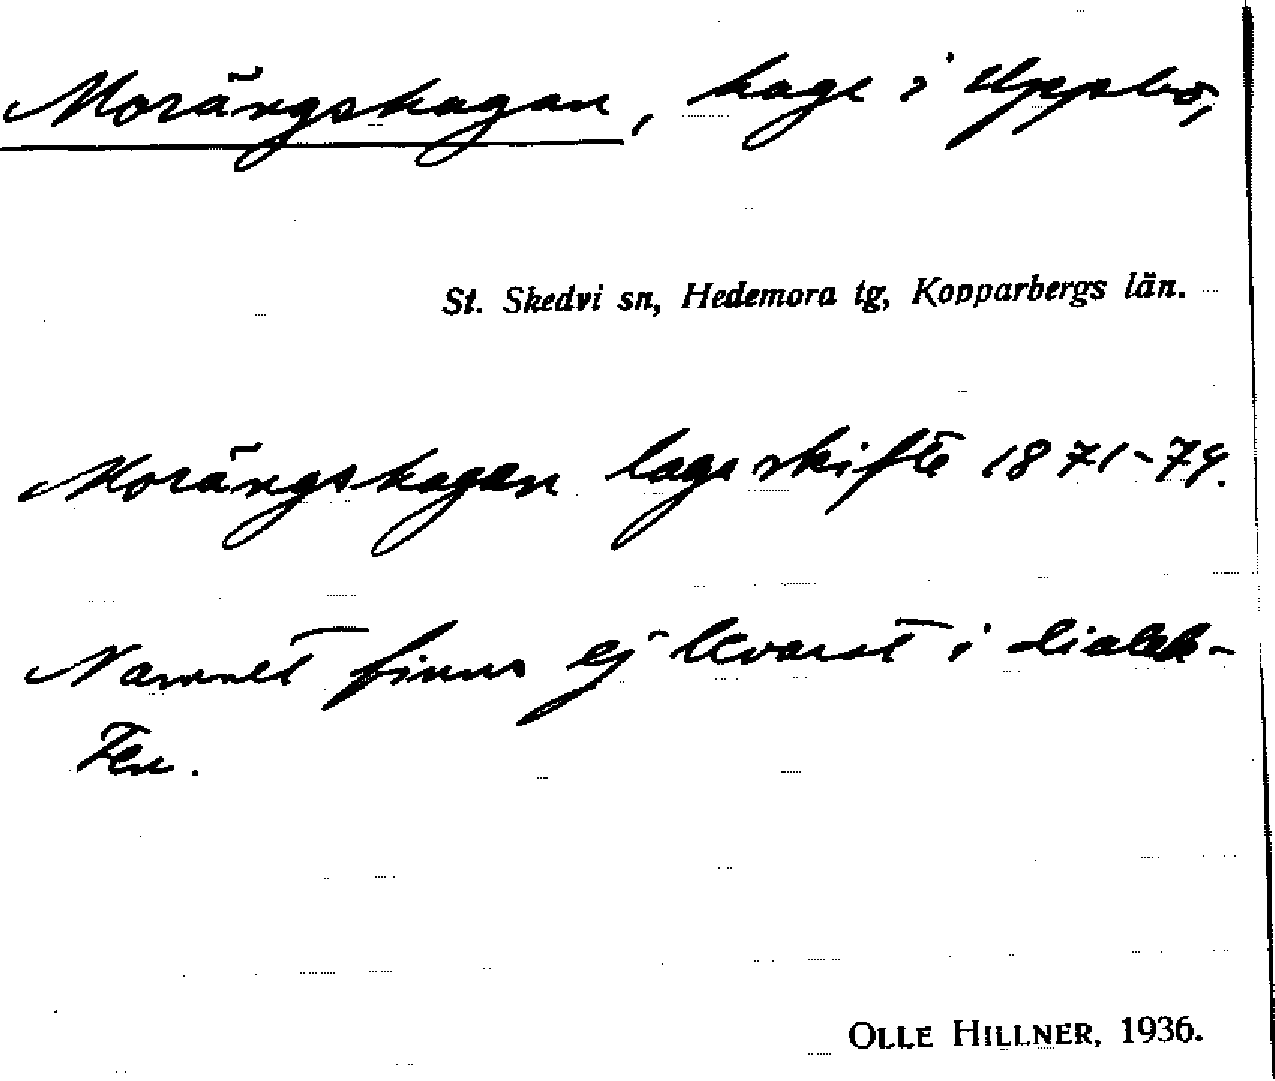 Morängshagan, hage i Uppbo,
St. Skedvi sn, Hedemora tg, Kopparbergs län.
Morängshagen lagaskifte 1871-79.
Namnet finns ej bevarat i dialek-
ten.
OLLE HILLNER, 1936.